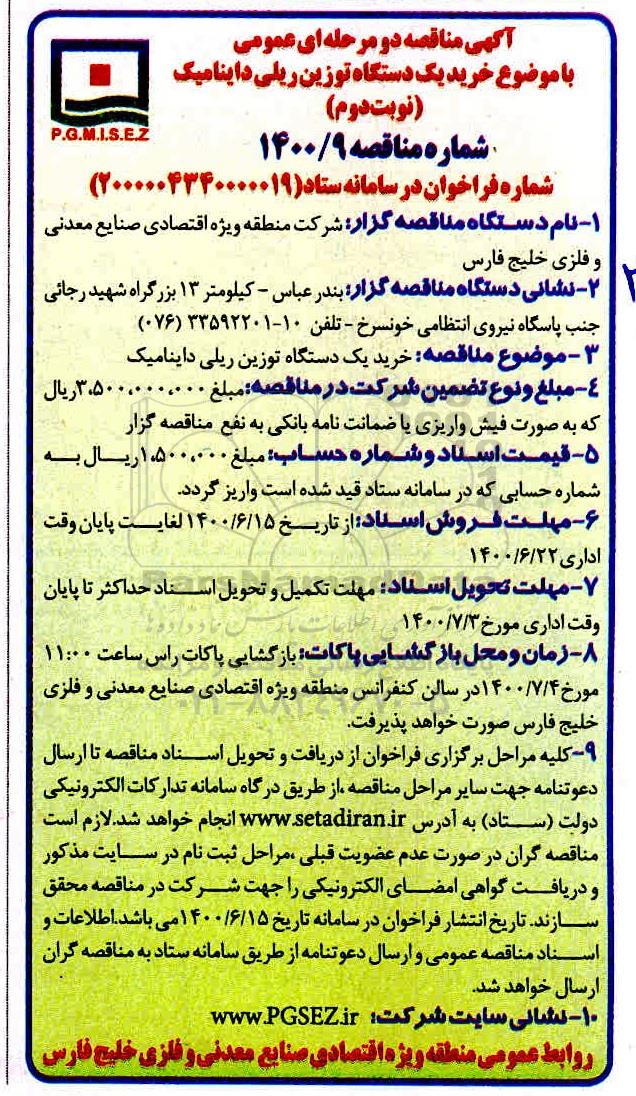 آگهی مناقصه دو مرحله ای عمومی
با موضوع خرید یک دستگاه توزین ریلی داینامیک
(نوبت دوم)
P.G.M.I.S.E.Z
شماره مناقصه ۱۴۰۰/۹
شماره فراخوان در سامانه ستاد(۲۰۰۰۰۰۴۳۴۰۰۰۰۰۱۹)
۱-نام دستگاه مناقصه گزار: شرکت منطقه ویژه اقتصادی صنایع معدنی
و فلزی خلیج فارس
۲-نشانی دستگاه مناقصه گزار: بندر عباس - کیلومتر ۱۳ بزرگراه شهید رجائی
جنب پاسگاه نیروی انتظامی خونسرخ - تلفن ۱۰-۳۳۵۹۲۲۰۱ (۰۷۶)
۳-موضوع مناقصه: خرید یک دستگاه توزین ریلی داینامیک
۴-مبلغ و نوع تضمین شرکت در مناقصه: مبلغ ۳،۵۰۰،۰۰۰،۰۰۰ریال
که به صورت فیش واریزی یا ضمانت نامه بانکی به نفع مناقصه گزار
۵-قیمت اسناد و شماره حساب: مبلغ ۱،۵۰۰،۰۰۰ریال به
شماره حسابی که در سامانه ستاد قید شده است واریز گردد.
۶-مهلت فروش اسناد: از تاریخ ۱۴۰۰/۶/۱۵ لغایت پایان وقت
اداری ۱۴۰۰/۶/۲۲
۷-مهلت تحویل اسناد: مهلت تکمیل و تحویل اسناد حداکثر تا پایان
وقت اداری مورخ ۱۴۰۰/۷/۳
۸-زمان و محل بازگشایی پاکات: بازگشایی پاکات راس ساعت ۱۱:۰۰
مورخ ۱۴۰۰/۷/۴در سالن کنفرانس منطقه ویژه اقتصادی صنایع معدنی و فلزی
خلیج فارس صورت خواهد پذیرفت.
۹-کلیه مراحل برگزاری فراخوان از دریافت و تحویل اسناد مناقصه تا ارسال
دعوتنامه جهت سایر مراحل مناقصه ،از طریق درگاه سامانه تدارکات الکترونیکی
دولت (ستاد) به آدرس www.setadiran.ir انجام خواهد شد.لازم است
مناقصه گران در صورت عدم عضویت قبلی ،مراحل ثبت نام در سایت مذکور
و دریافت گواهی امضای الکترونیکی را جهت شرکت در مناقصه محقق
سازند. تاریخ انتشار فراخوان در سامانه تاریخ ۱۴۰۰/۶/۱۵می باشد.اطلاعات و
اسناد مناقصه عمومی و ارسال دعوتنامه از طریق سامانه ستاد به مناقصه گران
ارسال خواهد شد.
۱۰-نشانی سایت شرکت: www.PGSEZ.ir
روابط عمومی منطقه ویژه اقتصادی صنایع معدنی و فلزی خلیج فارس